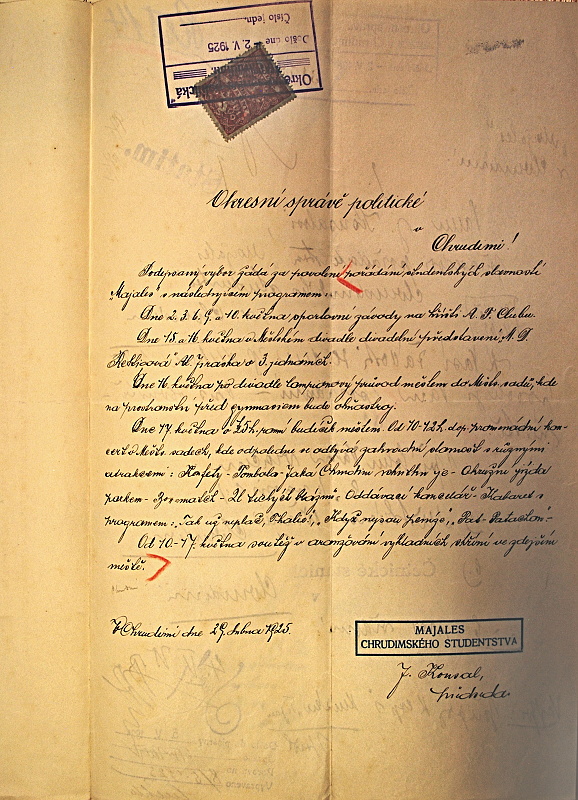 Okresní správě politické
v
Chrudimi!
Podepsaný výbor žádá za povolení pořádání studentských slavností
"Majales" s následujícím programem:
Dne 2. 3. 6. 9. a 10. května sportovní závody na hřišti A. F. Clubu.
Dne 15. a 16. května v Městském divadle divadelní představení, M. D.
Rettigová" Al. Jiráska o 3 jednáních.
Dne 16. května po divadle lampionový průvod městem do Měst. sadů, kde
na prostranství před gymnasiem bude ohňostroj.
Dne 17. května o 5h. ranní budíček městem. Od 10-12h. dop. promenádní kon-
cert v Měst. sadech, kde odpoledne se odbývá zahradní slavnost s různými
atrakcemi: Konfety - Tombola - Jaká - Okružní jízda
parkem - Oddávací kancelář - Kabaret s
programem: "Tak už neplač, "Když nejsou peníze", "Pat - Patachon"
Od 10.-17. května soutěž v aranžování výkladních skříní ve zdejším
městě.
V Chrudimi dne 29. dubna 1925.
MAJALES
CHRUDIMSKÉHO STUDENTSTVA
J. Konsal,
předseda.
Došlo dne 2. V. 1925
Číslo jedn.